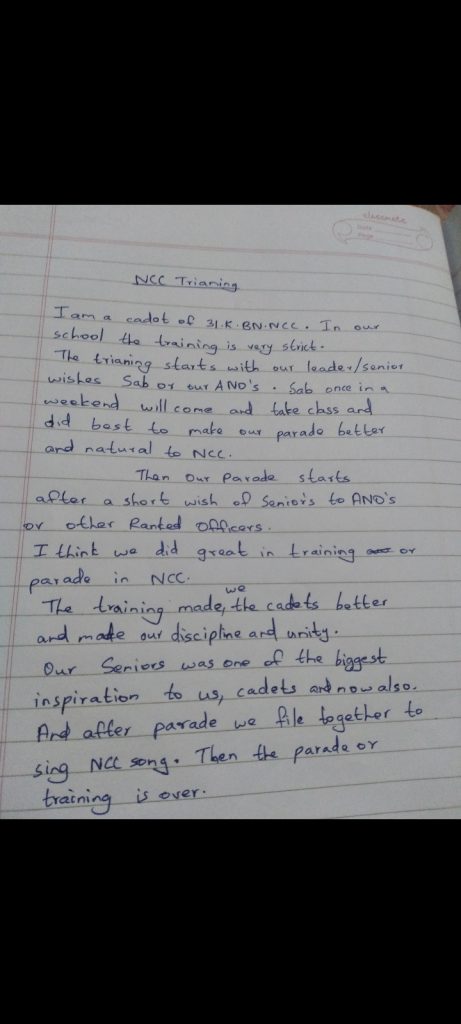 classmate
Date
Page
NCC Trianing
I am a cadot of 31.K.BN.NCC. In our
school the training is very strict.
The trianing starts with our leader/senior
wishes Sab or our ANO's. Sab once in a
weekend will come and take class and
did best to make our parade better
and natural to NCC.
Then our Parade starts
after a short wish of Senior's to ANO's
or other Ranted Officers.
I think we did great in training or
parade in NCC.
we
The training made, the cadets better
and made our discipline and unity.
Our Seniors was one of the biggest
inspiration to us, cadets and now also.
And after parade we file together to
sing NCC song. Then the parade or
training is over.